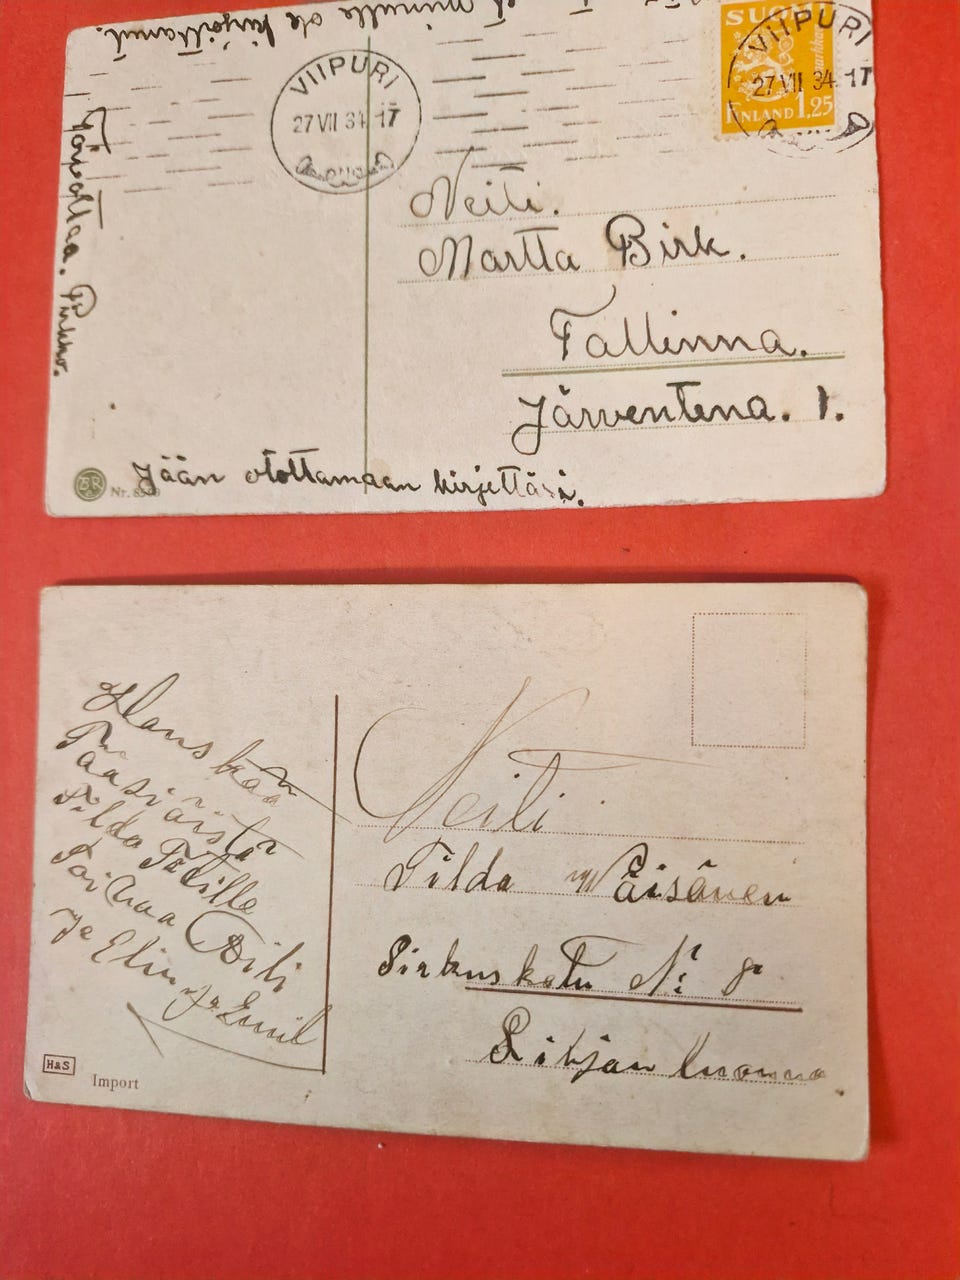 et minulle ole kirjoittanut.
VIIPURI
27 VII 34.-17
SUOMI
markkaa
FINLAND 1,25
VIIPURI
27 VII 34.-17
Neiti.
Martta Birk.
Tallinna.
Järventena. 1.
Jään otottamaan kirjettäsi.
Pirkko.
BR
Nr.
Hauskaa
Pääsiäistä
Tilda Tätille
Toivaa
ja Elin ja Emil
Neiti
Tilda Väisänen
Sirkuskatu N: 8
H&S
Import